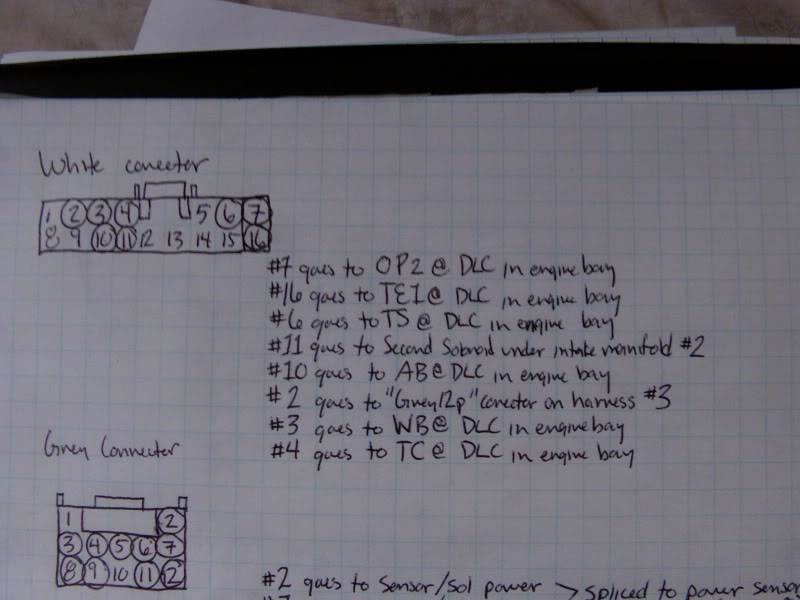 White conector
1 2 3 4 5 6 7
8 9 10 11 12 13 14 15 16
#7 goes to OP2 @ DLC in engine bay
#16 goes to TE1 @ DLC in engine bay
#6 goes to TS @ DLC in engine bay
#11 goes to Second Solnoid under intake manifold #2
#10 goes to AB @ DLC in engine bay
#2 goes to "Grey12p" conector on harness #3
#3 goes to WB @ DLC in engine bay
#4 goes to TC @ DLC in engine bay
Grey Connector
1 2
3 4 5 6 7
8 9 10 11 12
#2 goes to Sensor/Sol power > spliced to power sensor